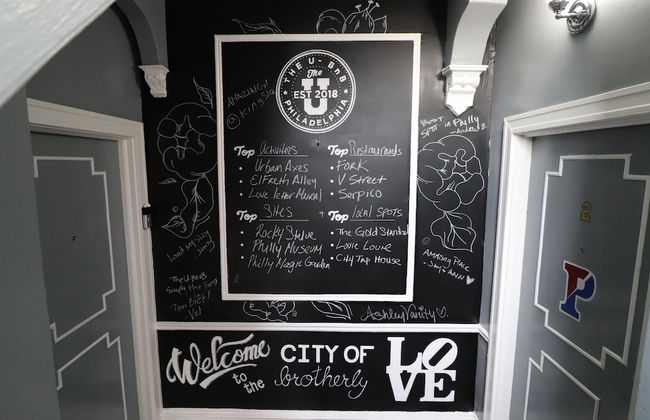 THE U-BNB
The
U
EST 2018
PHILADELPHIA
Top Activities
Urban Axes
Elfreth Alley
Love letter Mural
Top Restaurants
FORK
V Street
Serpico
Top SITES
Rocky Statue
Philly Museum
Philly Magic Garden
Top local SPOTS
The Gold Standard
Louie Louie
City Tap House
AMAZING!
BEST
SPOT in Philly
AMAZING PLACE
The U-BNB
Simply the best
Ashley Vanity
Welcome
to
the
CITY OF
brotherly
LOVE
2
P